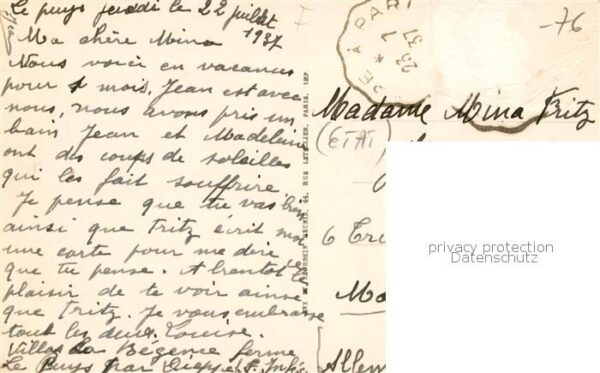 Le puys jeudi le 22 juillet
1937
Ma chère Mina
Nous voici en vacances
pour 1 mois. Jean est avec
nous, nous avons pris un
bain Jean et Madelein
ont des coups de soleilles
qui les fait souffrire.
Je pense que tu vas bien
ainsi que Fritz écrit moi
une carte pour me dire
que tu pense. A bientot le
plaisir de te voir ainsi
que Fritz. Je vous embrasse
tout les deux. Louise.
Villas la Régence ferme
Le Puys par Dieppe S. Inf.
RUE LETELLIER, PARIS, IMP.
23.7
37
-76
Madame Mina Fritz
(ETAT)
6
Ma
Allem
privacy protection
Datenschutz